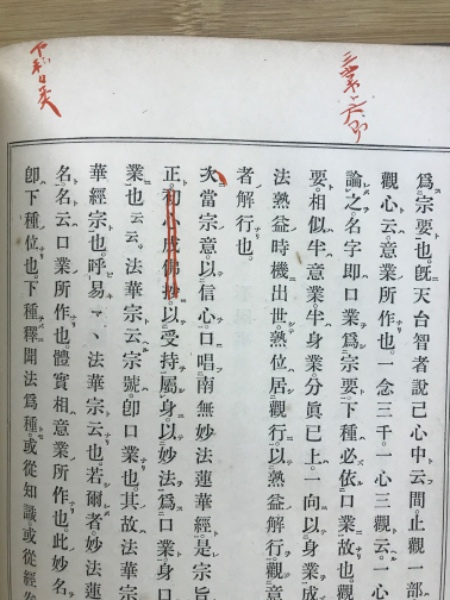 爲宗要也。既天台智者說己心中云間。止觀一部
觀心云。意業所作也。一念三千。一心三觀云。一心
論之。名字即口業爲宗要。下種必依口業故也。觀
要。相似半意業半身業。分眞已上。一向以身業成
法熟益時機出世。熟位居觀行。以熟益解行。觀意
者解行也。
次當宗意。以信心。口唱南無妙法蓮華經。是宗旨
正。初心成佛抄。以受持屬身。以妙法爲口業。身口
業也云云。法華宗云宗號。卽口業也。其故法華宗
華經宗也。呼易丶、法華宗云也。若爾者妙法蓮
名。名云口業所作也。體實相意業所作也。此妙名
卽下種位也。下種釋聞法爲種。或從知識或從經卷